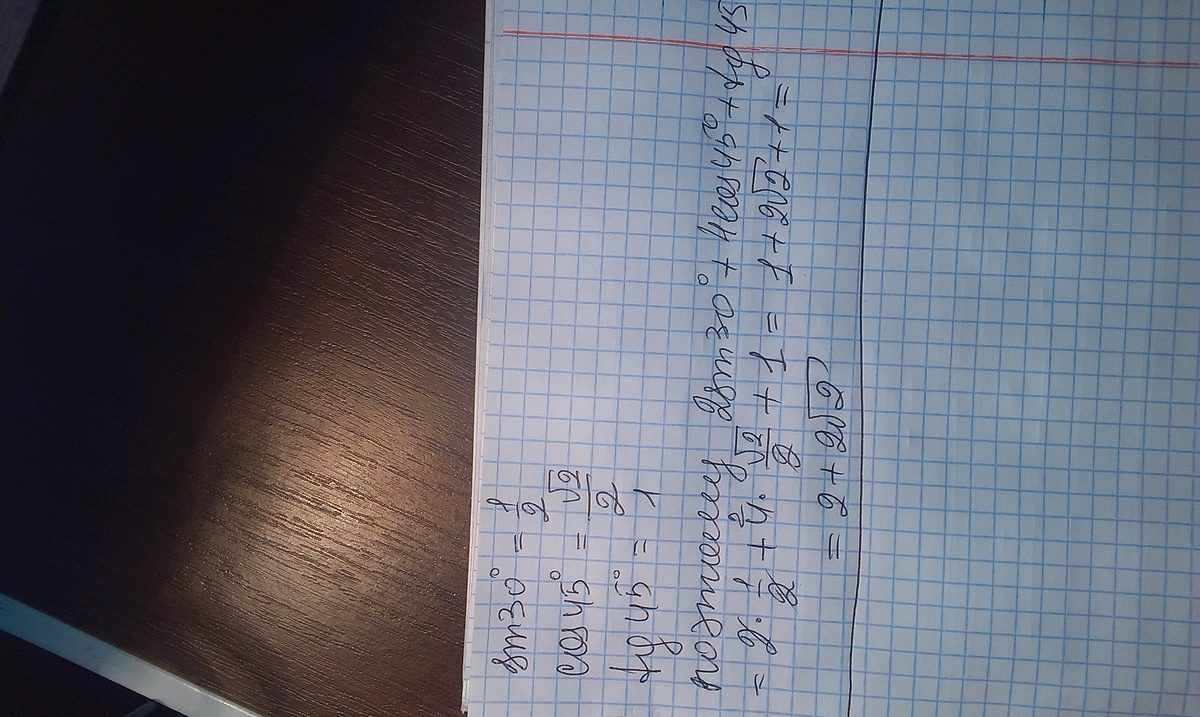 sin30° = 1/2
cos45° = √2/2
tg45° = 1
поэтому 2sin30° + 4cos45° + tg45
= 2·1/2 + 4·√2/2 + 1 = 1 + 2√2 + 1 =
= 2 + 2√2